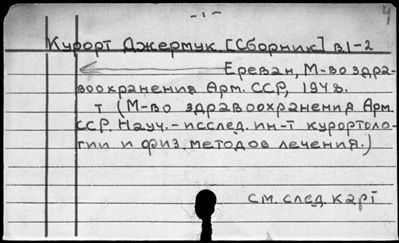 - 1 -
4
Курорт Джермук. [Сборник] в.1-2
Ереван, М-во здра-
воохранения Арм. ССР, 194
т (М-во здравоохранения Арм.
ССР. Науч.-исслед. ин-т курортоло-
гии и физ. методов лечения.)
см. след. карт